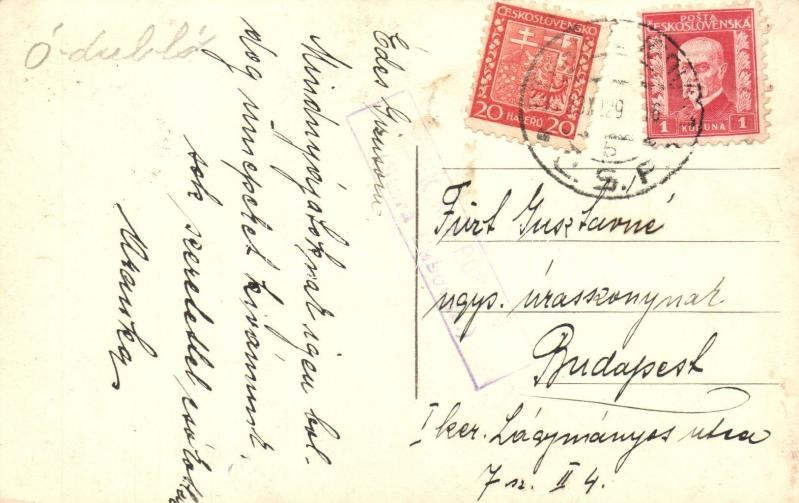 Ó-dubló
Édes Gizusom
Mindnyájatoknak igen bol-
dog ünnepeket kívánunk,
sok szeretettel csókol
Mranka
ČESKOSLOVENSKO
20 HALÉŘŮ 20
POŠTA
ČESKOSLOVENSKÁ
1 KORUNA 1
Č.S.P.
Fürt Gusztávné
ngys. úrasszonynak
Budapest
I ker. Lágymányos utca
7 sz. II 4.